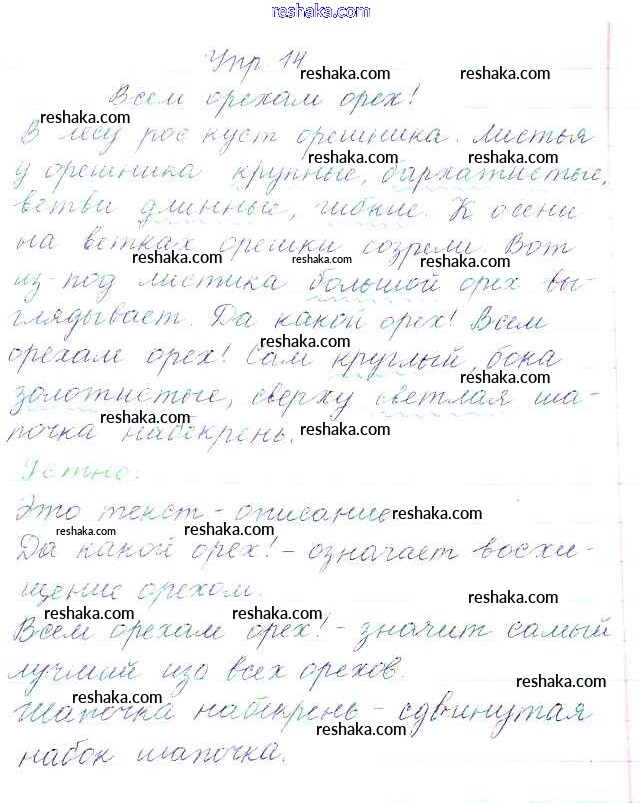 reshaka.com
Упр 14
reshaka.com reshaka.com
Всем орехам орех!
reshaka.com
В лесу рос куст орешника. Листья
reshaka.com reshaka.com
у орешника крупные, бархатистые,
ветви длинные, гибкие. К осени
на ветках орешки созрели. Вот
reshaka.com reshaka.com reshaka.com
из-под листика большой орех вы-
глядывает. Да какой орех! Всем
reshaka.com
орехам орех! Сам круглый, бока
reshaka.com
золотистые, сверху светлая ша-
reshaka.com reshaka.com
почка набекрень.
Устно:
Это текст - описание
reshaka.com
reshaka.com reshaka.com
Да какой орех! - означает восхи-
щение орехом.
reshaka.com
reshaka.com reshaka.com
Всем орехам орех! - значит самый
лучший изо всех орехов.
reshaka.com
reshaka.com
Шапочка набекрень - сдвинутая
reshaka.com
набок шапочка.